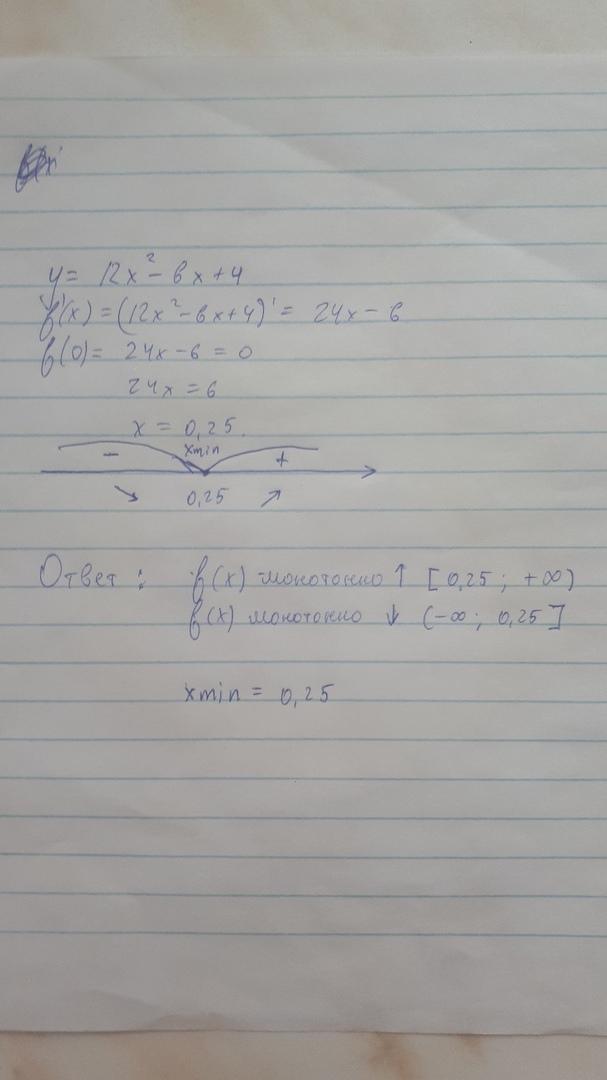 y = 12x² - 6x + 4
f'(x) = (12x² - 6x + 4)' = 24x - 6
f(0) = 24x - 6 = 0
24x = 6
x = 0,25.
- xmin +
↘ 0,25 ↗
Ответ : f(x) монотонно ↑ [0,25 ; +∞)
f(x) монотонно ↓ (-∞ ; 0,25]
xmin = 0,25